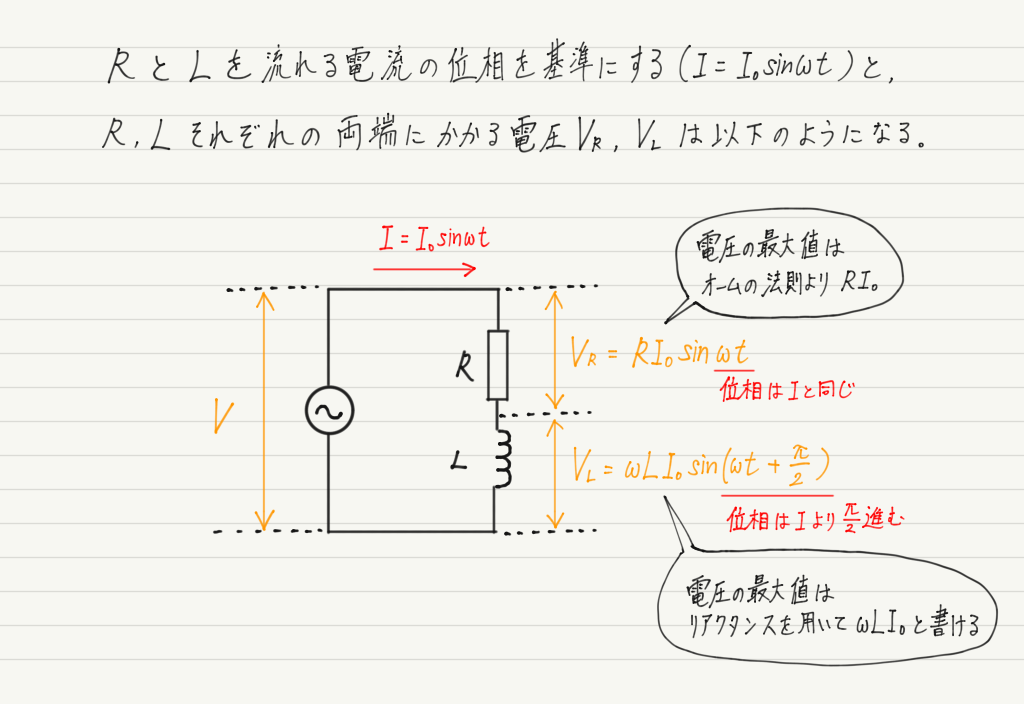 RとLを流れる電流の位相を基準にする(I=I₀sinωt)と,
R,Lそれぞれの両端にかかる電圧V_R, V_Lは以下のようになる。
I=I₀sinωt
電圧の最大値は
オームの法則より RI₀
V
R
V_R = RI₀ sin ωt
位相はIと同じ
L
V_L = ωLI₀ sin(ωt + π/2)
位相はIより π/2 進む
電圧の最大値は
リアクタンスを用いて ωLI₀と書ける